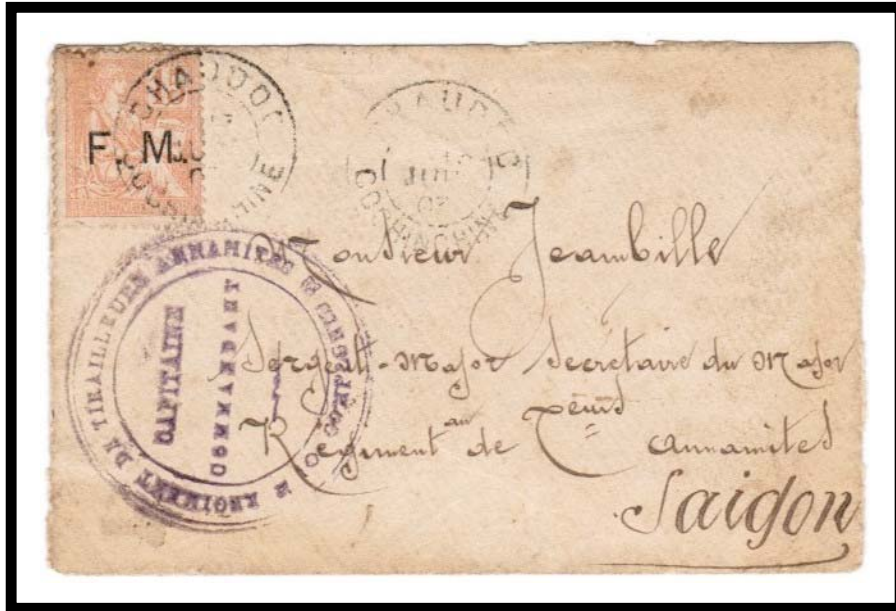 F. M.
CHAUDOC
COCHINCHINE
CHAUDOC
JUIL
COCHINCHINE
REGIMENT DE TIRAILLEURS ANNAMITES
CAPITAINE
COMMANDANT
Monsieur Jeambille
Sergent-Major Secrétaire du Major
au
Régiment de Teurs annamites
Saigon